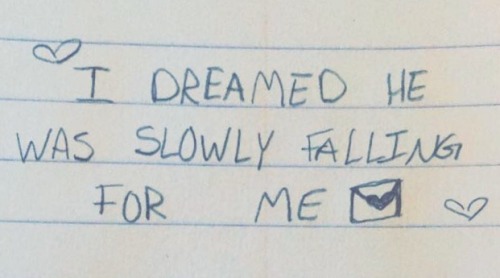 I DREAMED HE
WAS SLOWLY FALLING
FOR ME